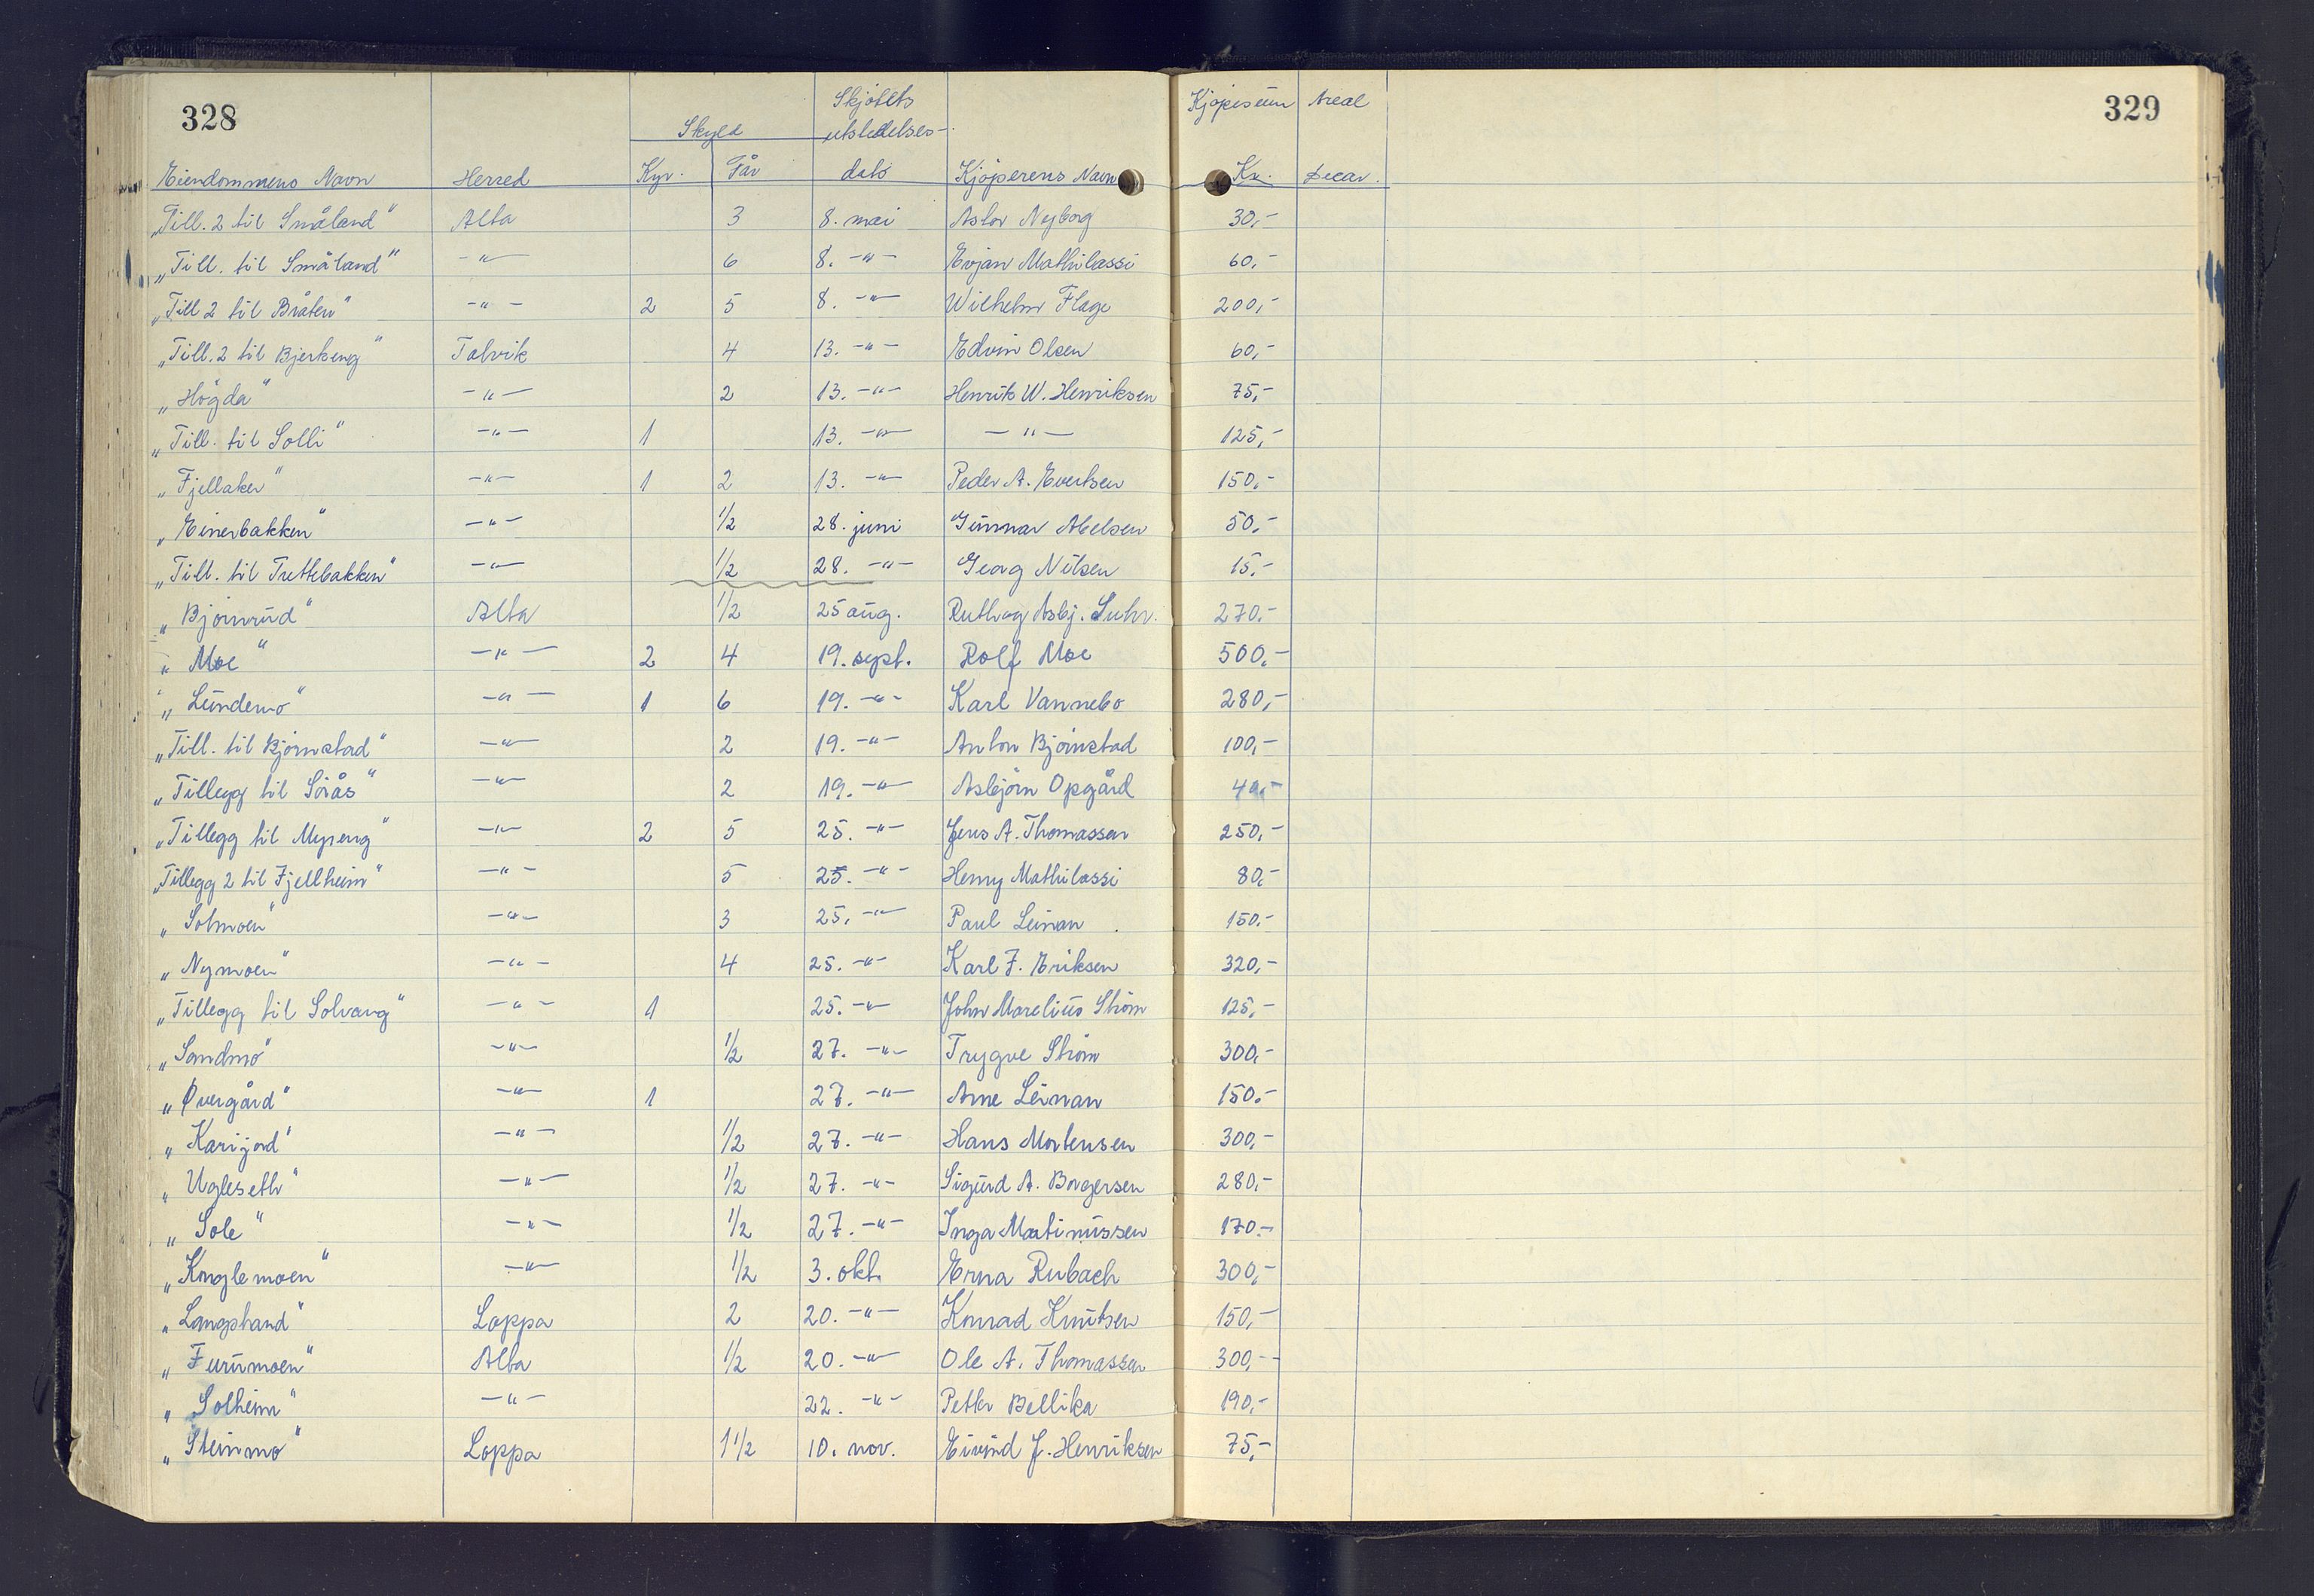 328
329
Skjötets Kjøpesum Areal
Skyld utstedelses-
Eiendommens Navn Herred Kyr. Får dato Kjöperens Navn Kr. Decar.
„Till. 2 til Småland" Alta 3 8. mai Aslov Nyborg 30,-
„Till. til Småland" -"- 6 8. -"- Evjan Mathilassi 60,-
„Till 2 til Bråten" -"- 2 5 8. -"- Wilhelm Flage 200,-
„Till. 2 til Bjerkeng" Talvik 4 13. -"- Edvin Olsen 60,-
„Högda" -"- 2 13. -"- Henrik W. Henriksen 75,-
„Till. til Solli" -"- 1 13. -"- -"- 125,-
„Fjellaker" -"- 1 2 13. -"- Peder A. Evertsen 150,-
„Einerbakken" -"- 1/2 28. juni Gunnar Abelsen 50,-
„Till. til Trettebakken" -"- 1/2 28. -"- Georg Nilsen 15,-
„Björnrud" Alta 1/2 25 aug. Ruth og Asbj. Suhr. 270.-
„Moe" -"- 2 4 19. sept. Rolf Moe 500,-
„Lundemo" -"- 1 6 19. -"- Karl Vannebo 280,-
„Till. til Björnstad" -"- 2 19. -"- Anton Björnstad 100,-
„Tillegg til Sörås" -"- 2 19. -"- Asbjörn Opgård 40,-
„Tillegg til Myreng" -"- 2 5 25. -"- Jens A. Thomassen 250,-
„Tillegg 2 til Fjellheim" -"- 5 25. -"- Henry Mathilassi 80,-
„Solmoen" -"- 3 25. -"- Paul Leinan 150.-
„Nymoen" -"- 4 25. -"- Karl F. Eriksen 320,-
„Tillegg til Solvang" -"- 1 25. -"- John Marelius Ström 125,-
„Sandmo" -"- 1/2 27. -"- Trygve Ström 300,-
„Øvergård" -"- 1 27. -"- Arne Leinan 150.-
„Karijord" -"- 1/2 27. -"- Hans Mortensen 300,-
„Ugleseth" -"- 1/2 27. -"- Sigurd A. Borgersen 280,-
„Sole" -"- 1/2 27. -"- Inga Martinussen 170.-
„Konglemoen" -"- 1/2 3. okt. Erna Rubach 300,-
„Langstrand" Loppa 2 20. -"- Konrad Knutsen 150,-
„Furumoen" Alta 1/2 20. -"- Ole A. Thomassen 300,-
„Solheim" -"- 22. -"- Petter Bellika 190,-
„Steinmo" Loppa 1 1/2 10. nov. Eivind J. Henriksen 75,-